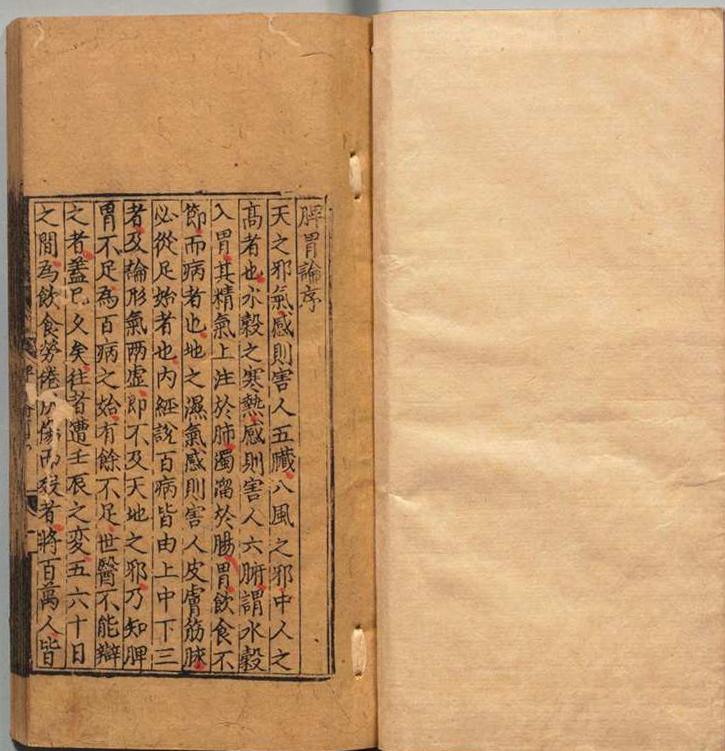 脾胃論序
天之邪氣感則害人五臓八風之邪中人之
高者也水穀之寒熱感則害人六腑謂水穀
入胃其精氣上注於肺濁溜於腸胃飲食不
節而病者也地之濕氣感則害人皮膚筋脉
必從足始者也内経說百病皆由上中下三
者及論形氣兩虛即不及天地之邪乃知脾
胃不足為百病之始有餘不足世醫不能辯
之者蓋已久矣往者遭壬辰之変五六十日
之間為飲食勞倦所傷而殁者將百萬人皆